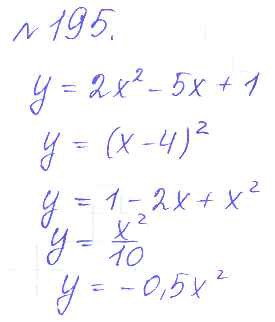 №195.
y = 2x² - 5x + 1
y = (x - 4)²
y = 1 - 2x + x²
y = x²/10
y = -0,5x²